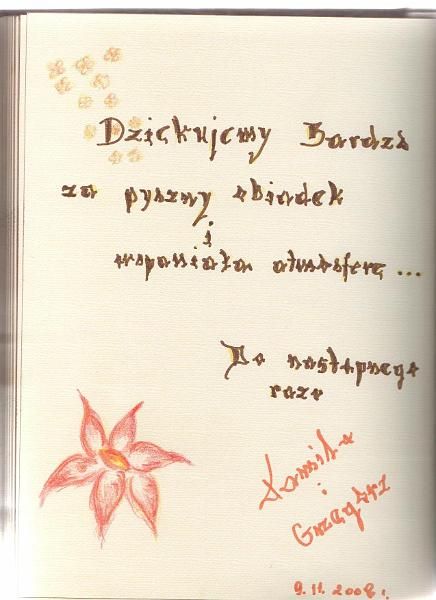 Dziękujemy Bardzo
za pyszny obiadek
i
wspaniałą atmosferę ...
Do następnego
razu
Kamila
i
Grzegorz
9.11.2008 r.